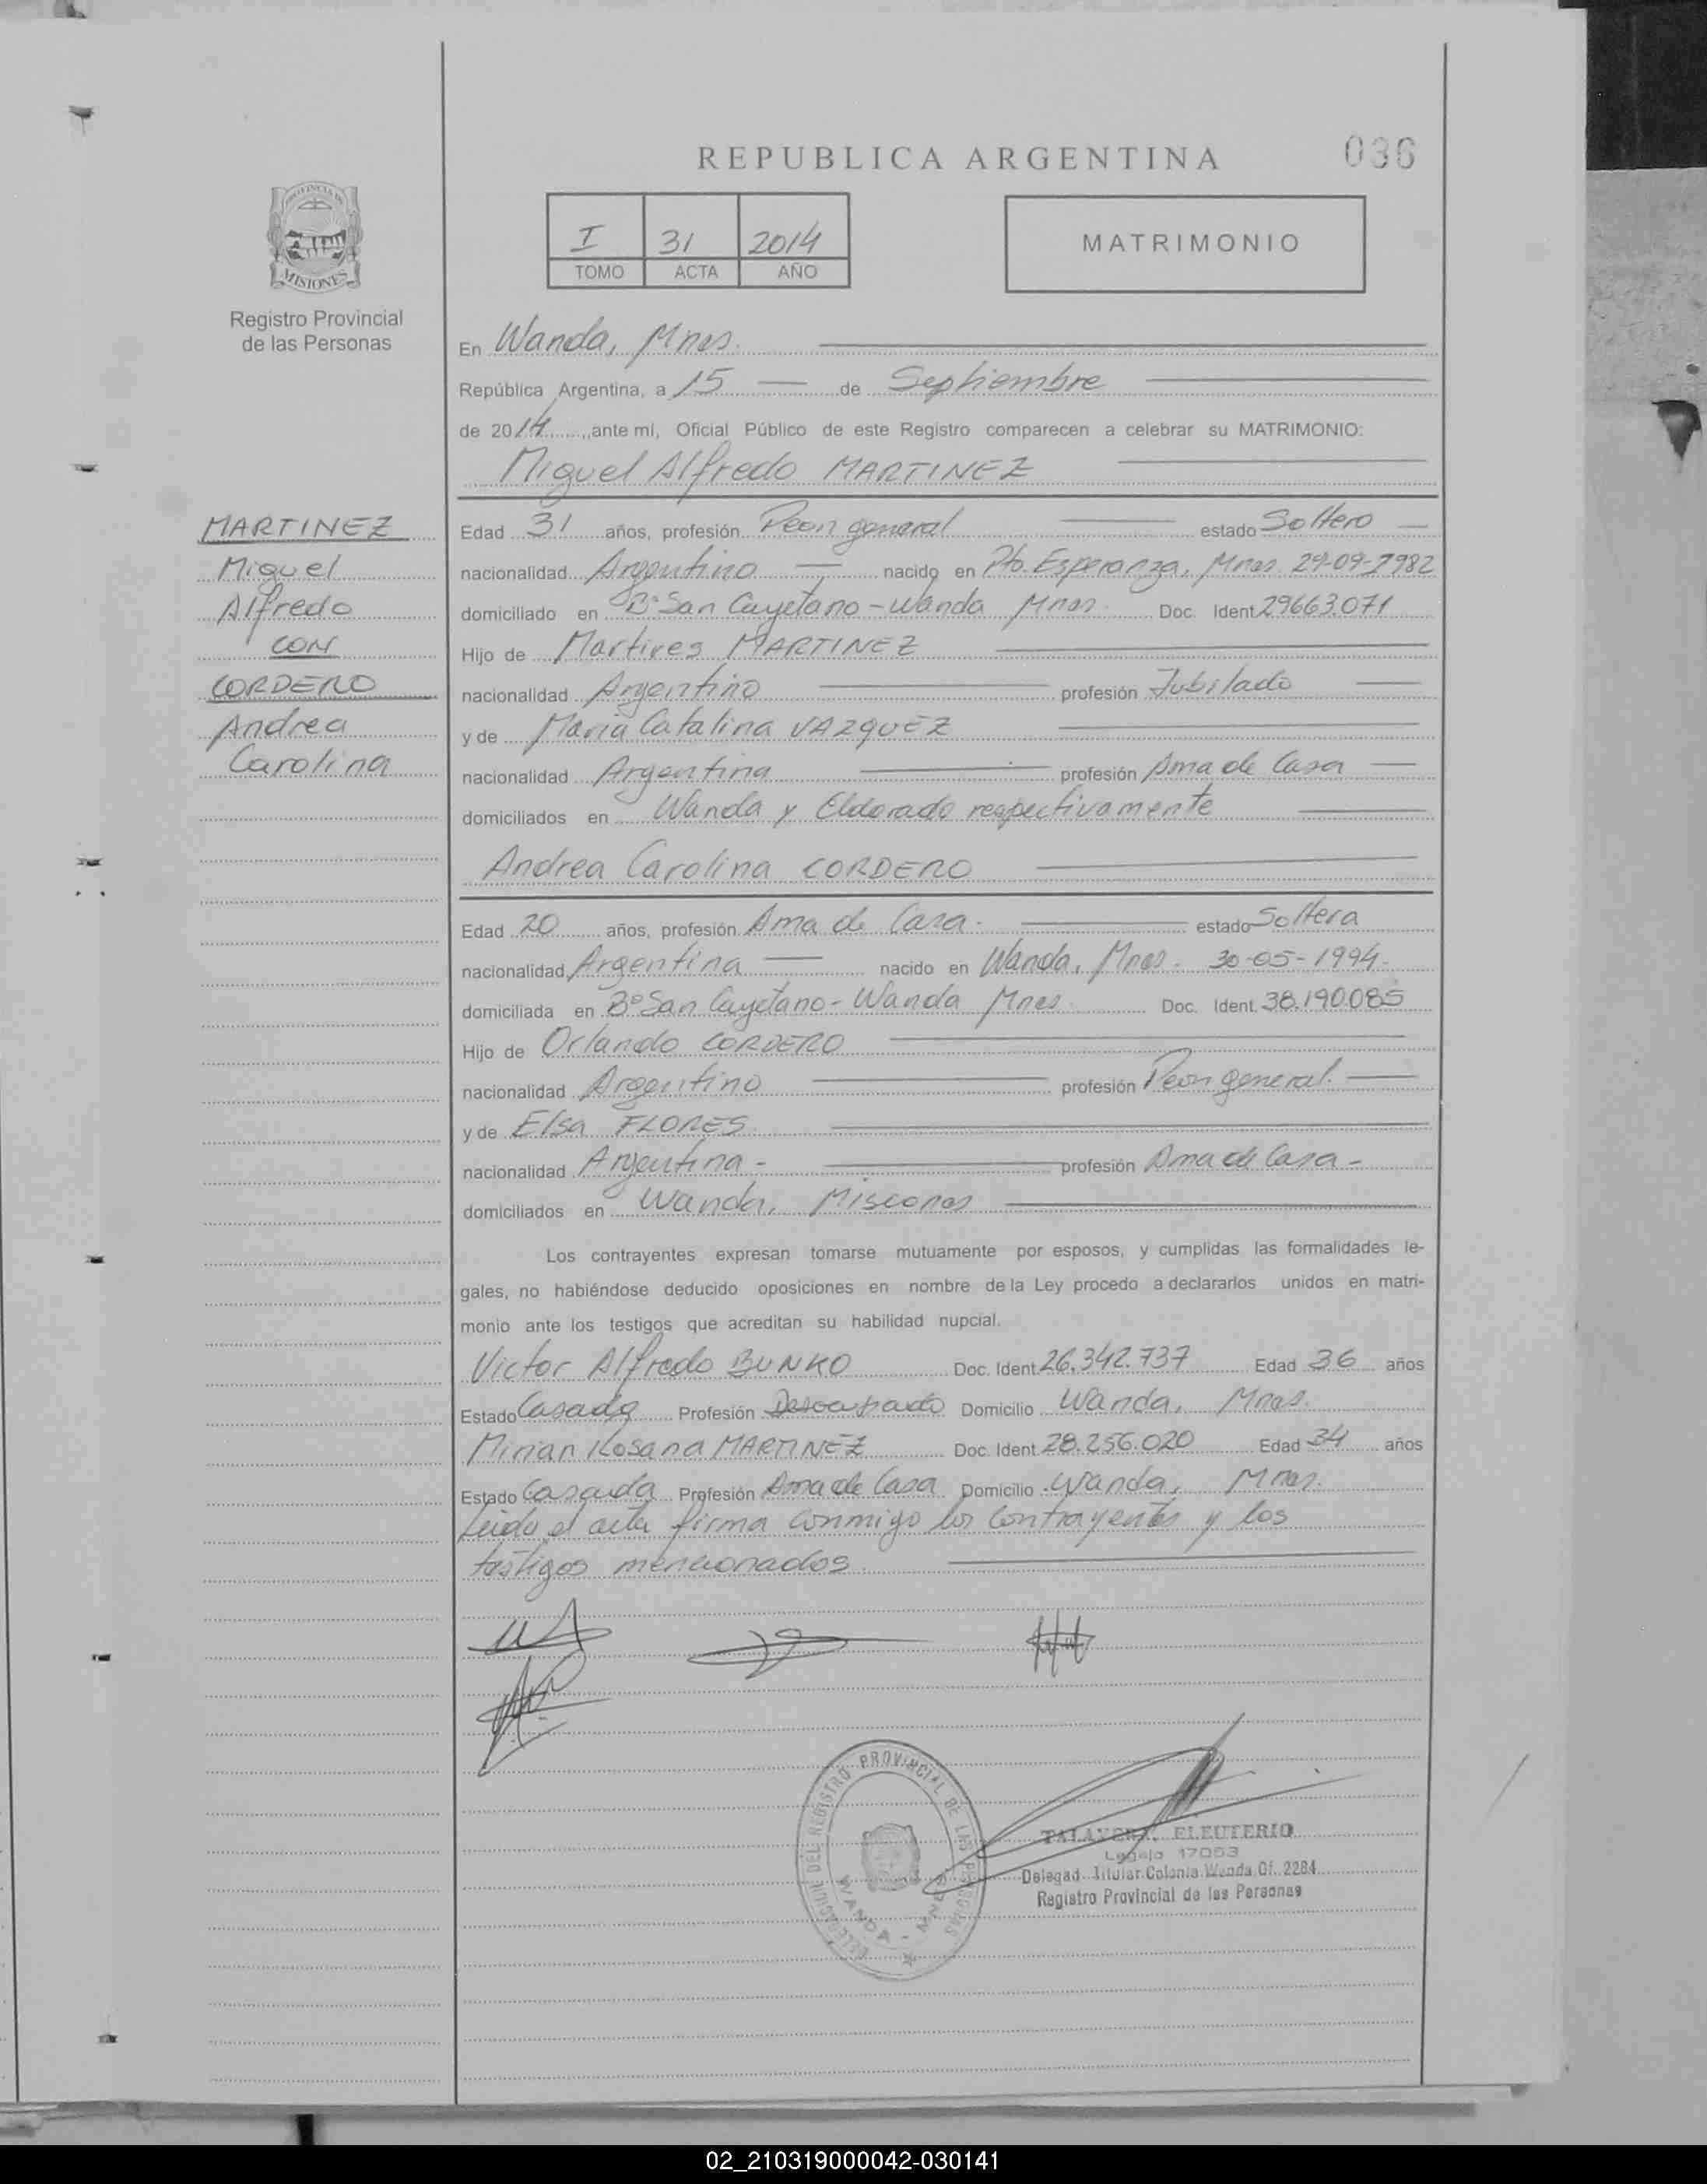 REPUBLICA ARGENTINA
036
PROVINCIA DE
MISIONES
Registro Provincial
de las Personas
I 31 2014
TOMO ACTA AÑO
MATRIMONIO
En Wanda, Mnes.
República Argentina, a 15 de Septiembre
de 2014, ante mí, Oficial Público de este Registro comparecen a celebrar su MATRIMONIO:
Miguel Alfredo MARTINEZ
MARTINEZ
Miguel
Alfredo
CON
CORDERO
Andrea
Carolina
Edad 31 años, profesión Peon general estado Soltero
nacionalidad Argentino nacido en Pto. Esperanza, Mnes. 29-09-1982
domiciliado en B° San Cayetano - Wanda Mnes. Doc. Ident. 29.663.071
Hijo de Martires MARTINEZ
nacionalidad Argentino profesión Jubilado
y de Maria Catalina VAZQUEZ
nacionalidad Argentina profesión Ama de Casa
domiciliados en Wanda y Eldorado respectivamente
Andrea Carolina CORDERO
Edad 20 años, profesión Ama de Casa. estado Soltera
nacionalidad Argentina nacido en Wanda, Mnes. 30-05-1994.
domiciliada en B° San Cayetano - Wanda Mnes. Doc. Ident. 38.190.085
Hijo de Orlando CORDERO
nacionalidad Argentino profesión Peon general.
y de Elsa FLORES
nacionalidad Argentina - profesión Ama de Casa -
domiciliados en Wanda, Misiones
Los contrayentes expresan tomarse mutuamente por esposos, y cumplidas las formalidades le-
gales, no habiéndose deducido oposiciones en nombre de la Ley procedo a declararlos unidos en matri-
monio ante los testigos que acreditan su habilidad nupcial.
Victor Alfredo BUNKO Doc. Ident. 26.342.737 Edad 36 años
Estado Casado Profesión Desocupado Domicilio Wanda, Mnes.
Mirian Rosana MARTINEZ Doc. Ident. 28.256.020 Edad 34 años
Estado Casada Profesión Ama de Casa Domicilio Wanda, Mnes.
Leida el acta firma conmigo los contrayentes y los
testigos mencionados.
DELEGACION DEL REGISTRO PROVINCIAL DE LAS PERSONAS
WANDA - MNES
TALAVERA, ELEUTERIO
Legajo 17053
Delegad. Titular Colonia Wanda Of. 2284
Registro Provincial de las Personas
02_210319000042-030141